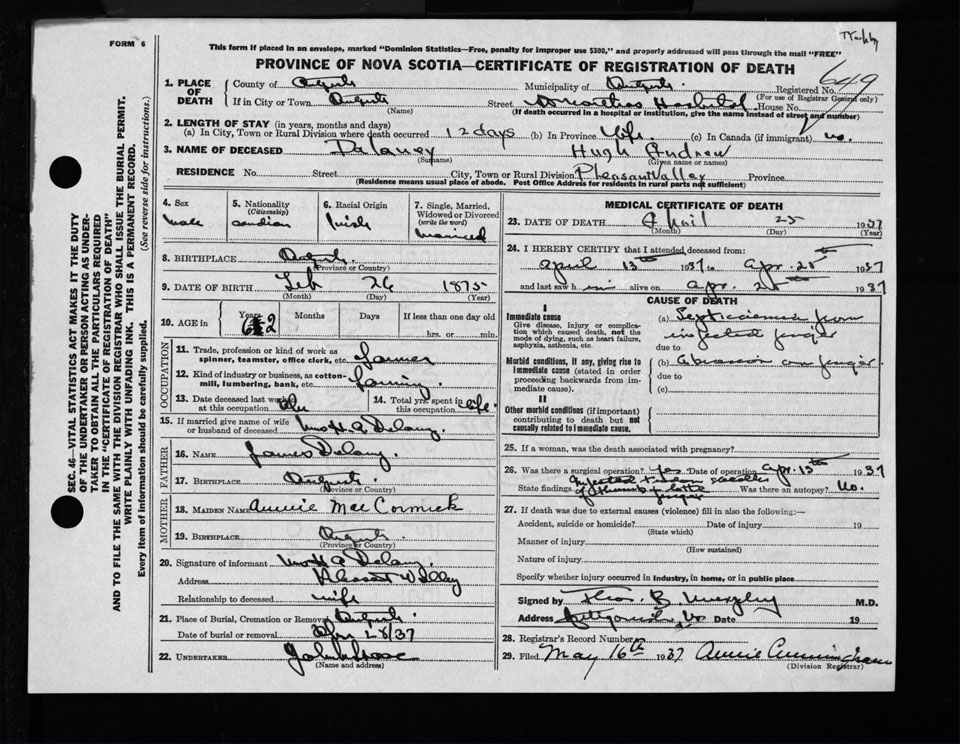 FORM 6
This form if placed in an envelope, marked "Dominion Statistics—Free, penalty for improper use $300," and properly addressed will pass through the mail "FREE"
PROVINCE OF NOVA SCOTIA—CERTIFICATE OF REGISTRATION OF DEATH
649
SEC. 46—VITAL STATISTICS ACT MAKES IT THE DUTY
OF THE UNDERTAKER OR PERSON ACTING AS UNDER-
TAKER TO OBTAIN ALL THE PARTICULARS REQUIRED
IN THE "CERTIFICATE OF REGISTRATION OF DEATH"
AND TO FILE THE SAME WITH THE DIVISION REGISTRAR WHO SHALL ISSUE THE BURIAL PERMIT.
WRITE PLAINLY WITH UNFADING INK. THIS IS A PERMANENT RECORD.
Every item of information should be carefully supplied. (See reverse side for instructions.)
1. PLACE OF DEATH
County of
Municipality of
Registered No.
(For use of Registrar General only)
If in City or Town
(Name)
Street Hospital House No.
(If death occurred in a hospital or institution, give the name instead of street and number)
2. LENGTH OF STAY (in years, months and days)
(a) In City, Town or Rural Division where death occurred 12 days (b) In Province life (c) In Canada (if immigrant) no.
3. NAME OF DECEASED Delaney Hugh Andrew
(Surname) (Given name or names)
RESIDENCE No. Street City, Town or Rural Division Pleasant Valley Province
(Residence means usual place of abode. Post Office Address for residents in rural parts not sufficient)
4. Sex male
5. Nationality (Citizenship)
6. Racial Origin Irish
7. Single, Married, Widowed or Divorced (write the word) Married
8. BIRTHPLACE
(Province or Country)
9. DATE OF BIRTH Feb 26 1875
(Month) (Day) (Year)
10. AGE in
Years Months Days If less than one day old
62
hrs. or min.
OCCUPATION
11. Trade, profession or kind of work as spinner, teamster, office clerk, etc. farmer
12. Kind of industry or business, as cotton-mill, lumbering, bank, etc. farming.
13. Date deceased last worked at this occupation
14. Total yrs. spent in this occupation life.
15. If married give name of wife or husband of deceased
FATHER
16. NAME James Delaney
17. BIRTHPLACE
(Province or Country)
MOTHER
18. MAIDEN NAME Annie MacCormick
19. BIRTHPLACE
(Province or Country)
20. Signature of informant
Address Pleasant Valley
Relationship to deceased wife
21. Place of Burial, Cremation or Removal
Date of burial or removal 28/37
22. UNDERTAKER
(Name and address)
MEDICAL CERTIFICATE OF DEATH
23. DATE OF DEATH April 25 1937
(Month) (Day) (Year)
24. I HEREBY CERTIFY that I attended deceased from:
April 13th 1937 to Apr. 25th 1937
and last saw him alive on Apr. 25th 1937
CAUSE OF DEATH
I
Immediate cause
Give disease, injury or complication which caused death, not the mode of dying, such as heart failure, asphyxia, asthenia, etc.
(a) Septicaemia from
infected finger
due to
Morbid conditions, if any, giving rise to immediate cause (stated in order proceeding backwards from immediate cause).
(b) Abrasion on finger.
due to
(c)
II
Other morbid conditions (if important) contributing to death but not causally related to immediate cause.
25. If a woman, was the death associated with pregnancy?
26. Was there a surgical operation? yes Date of operation Apr. 13th 1937
State findings Infected
Was there an autopsy? No.
27. If death was due to external causes (violence) fill in also the following:—
Accident, suicide or homicide? Date of injury 19
(State which)
Manner of injury
(How sustained)
Nature of injury
Specify whether injury occurred in industry, in home, or in public place
Signed by Thos. B Murphy M.D.
Address Date 19
28. Registrar's Record Number
29. Filed May 16th 1937 Annie Cunningham
(Division Registrar)